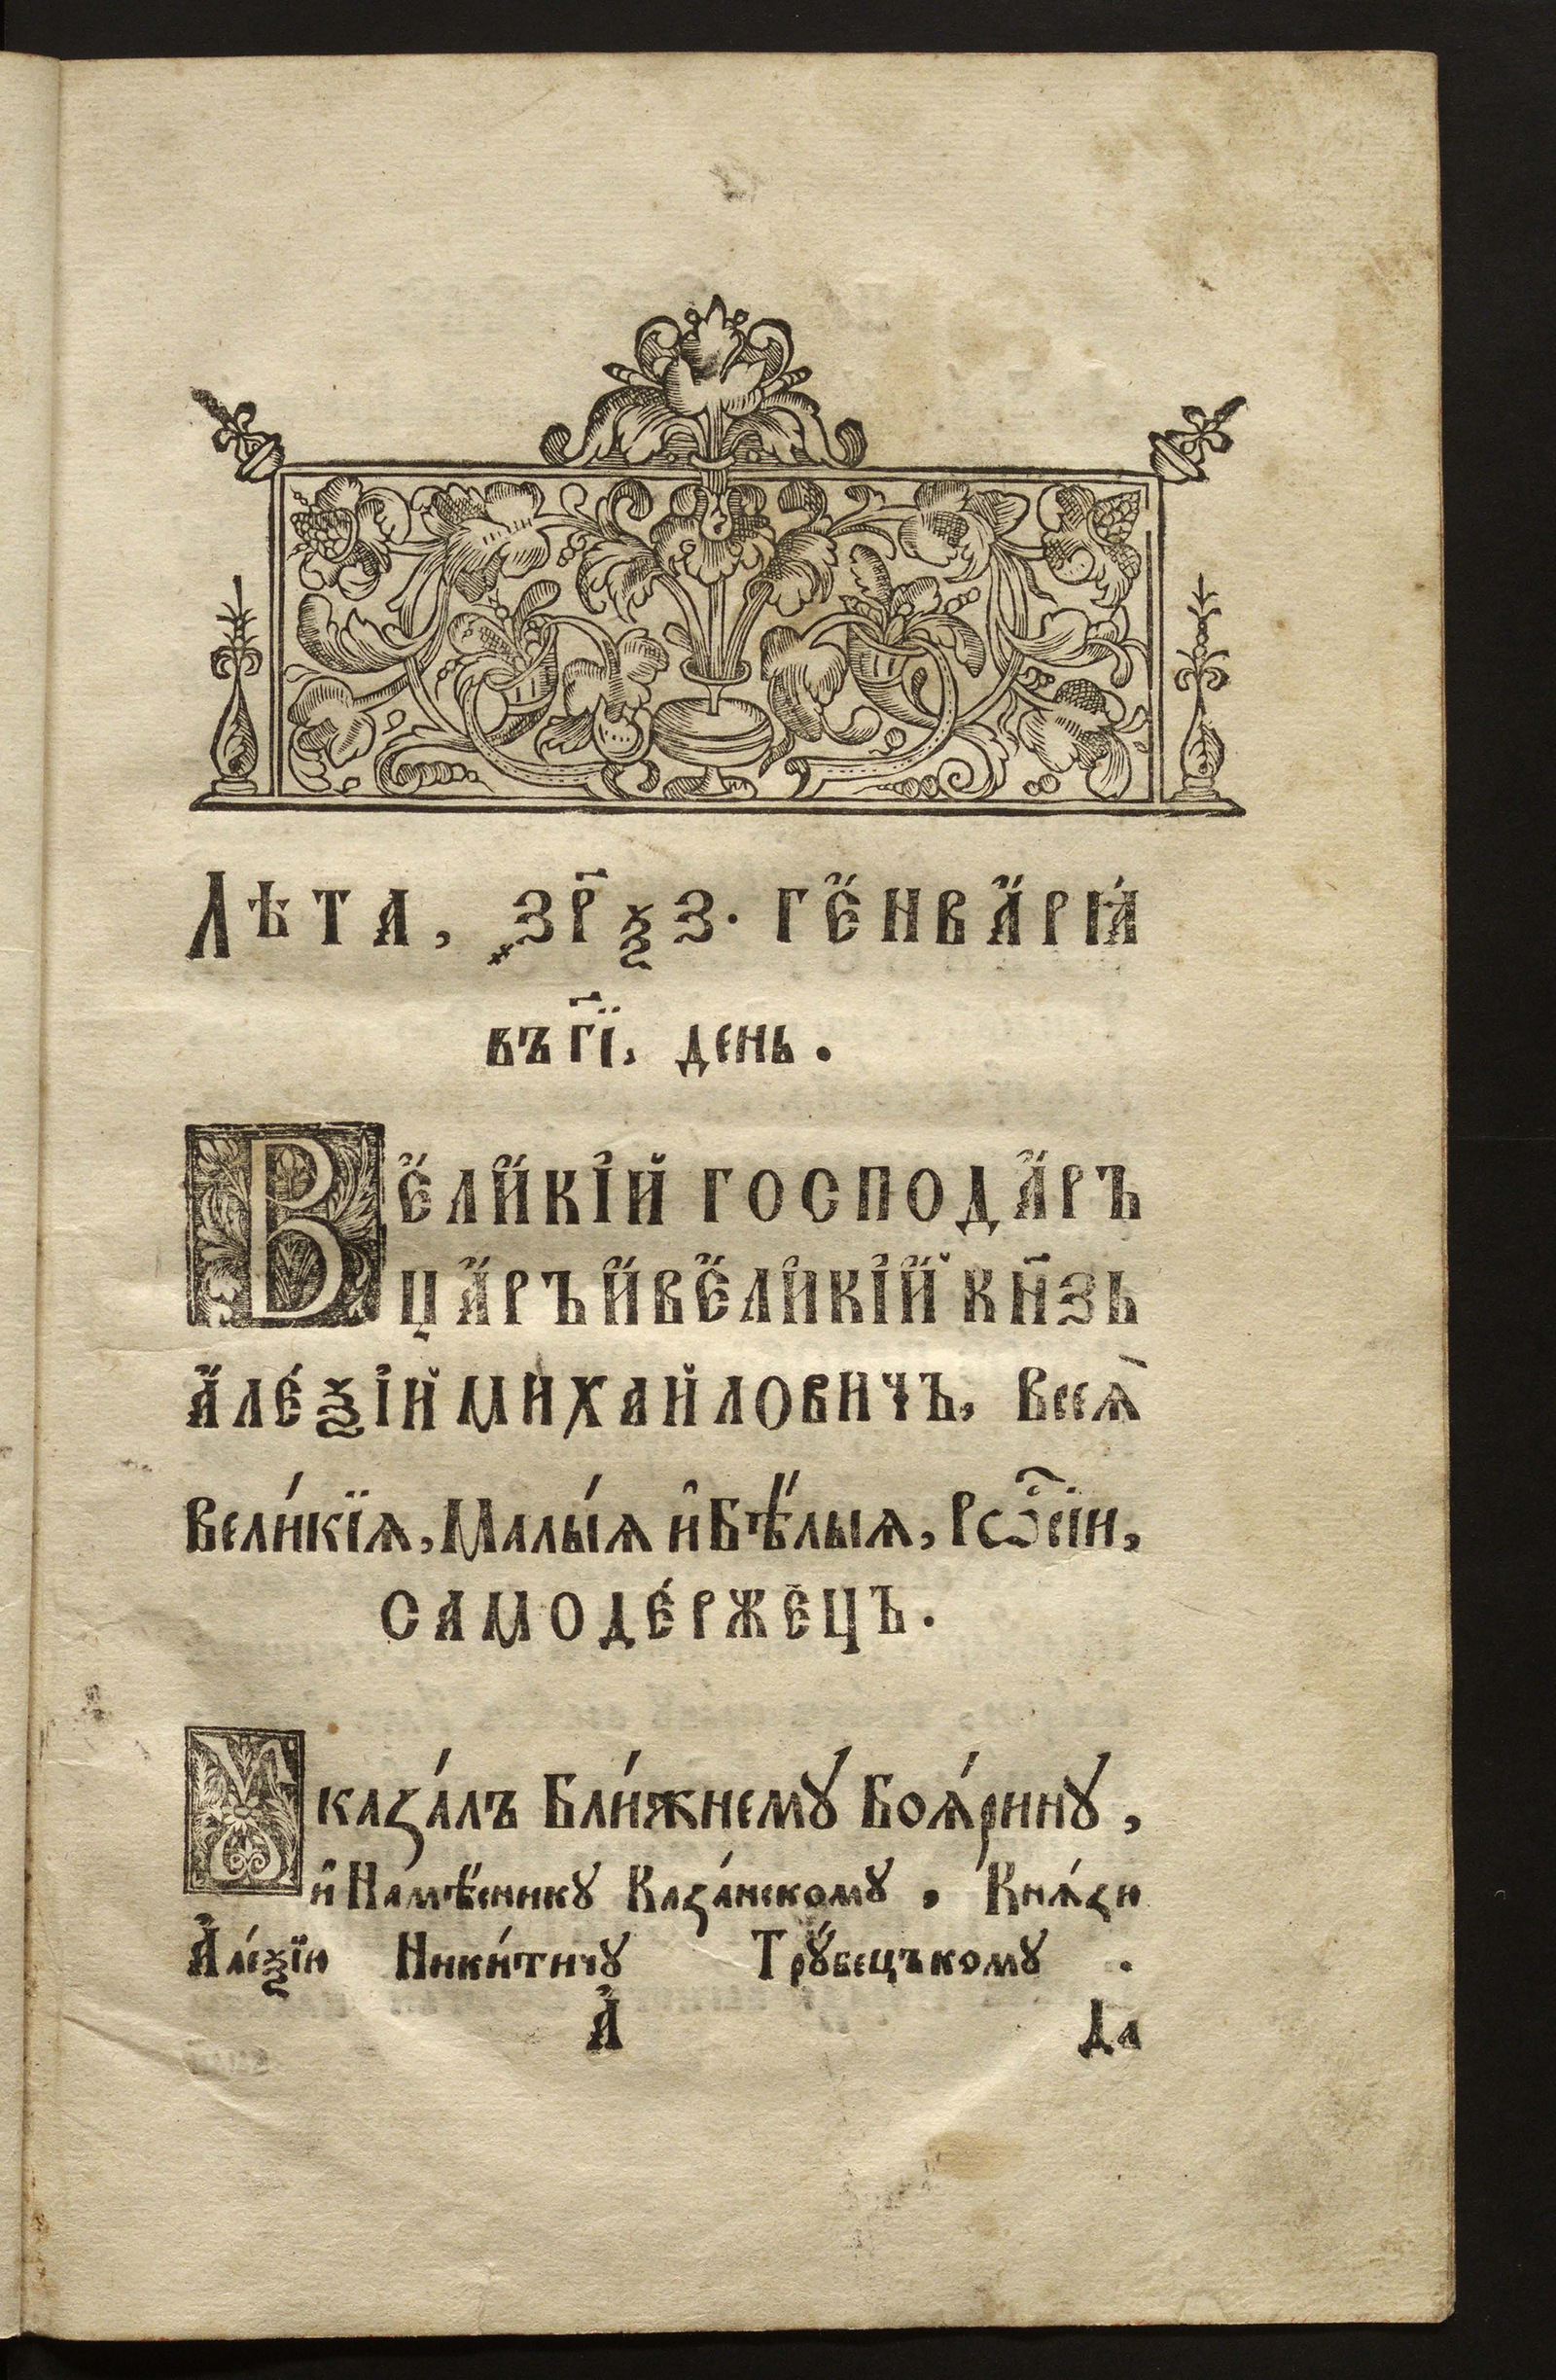 Лѣта, ҂зр҃ѯз. генварїа
въ г҃ї, день.
Великїй господаръ
царъ и великїй кн҃зь
Алеѯїй михаиловичъ, Всеѧ
Вели́кїѧ, Малы́ѧ и҆ Бѣ́лыѧ, Рѡсїи,
самоде́ржецъ.
Ꙋказа́лъ Бли́жнемꙋ Боѧ́ринꙋ,
и҆ Намѣ́сникꙋ Каза́нскомꙋ, Кнѧ́зю
А҆ле́ѯїю Ники́тичꙋ Трꙋбецъкомꙋ.
А҆ Да